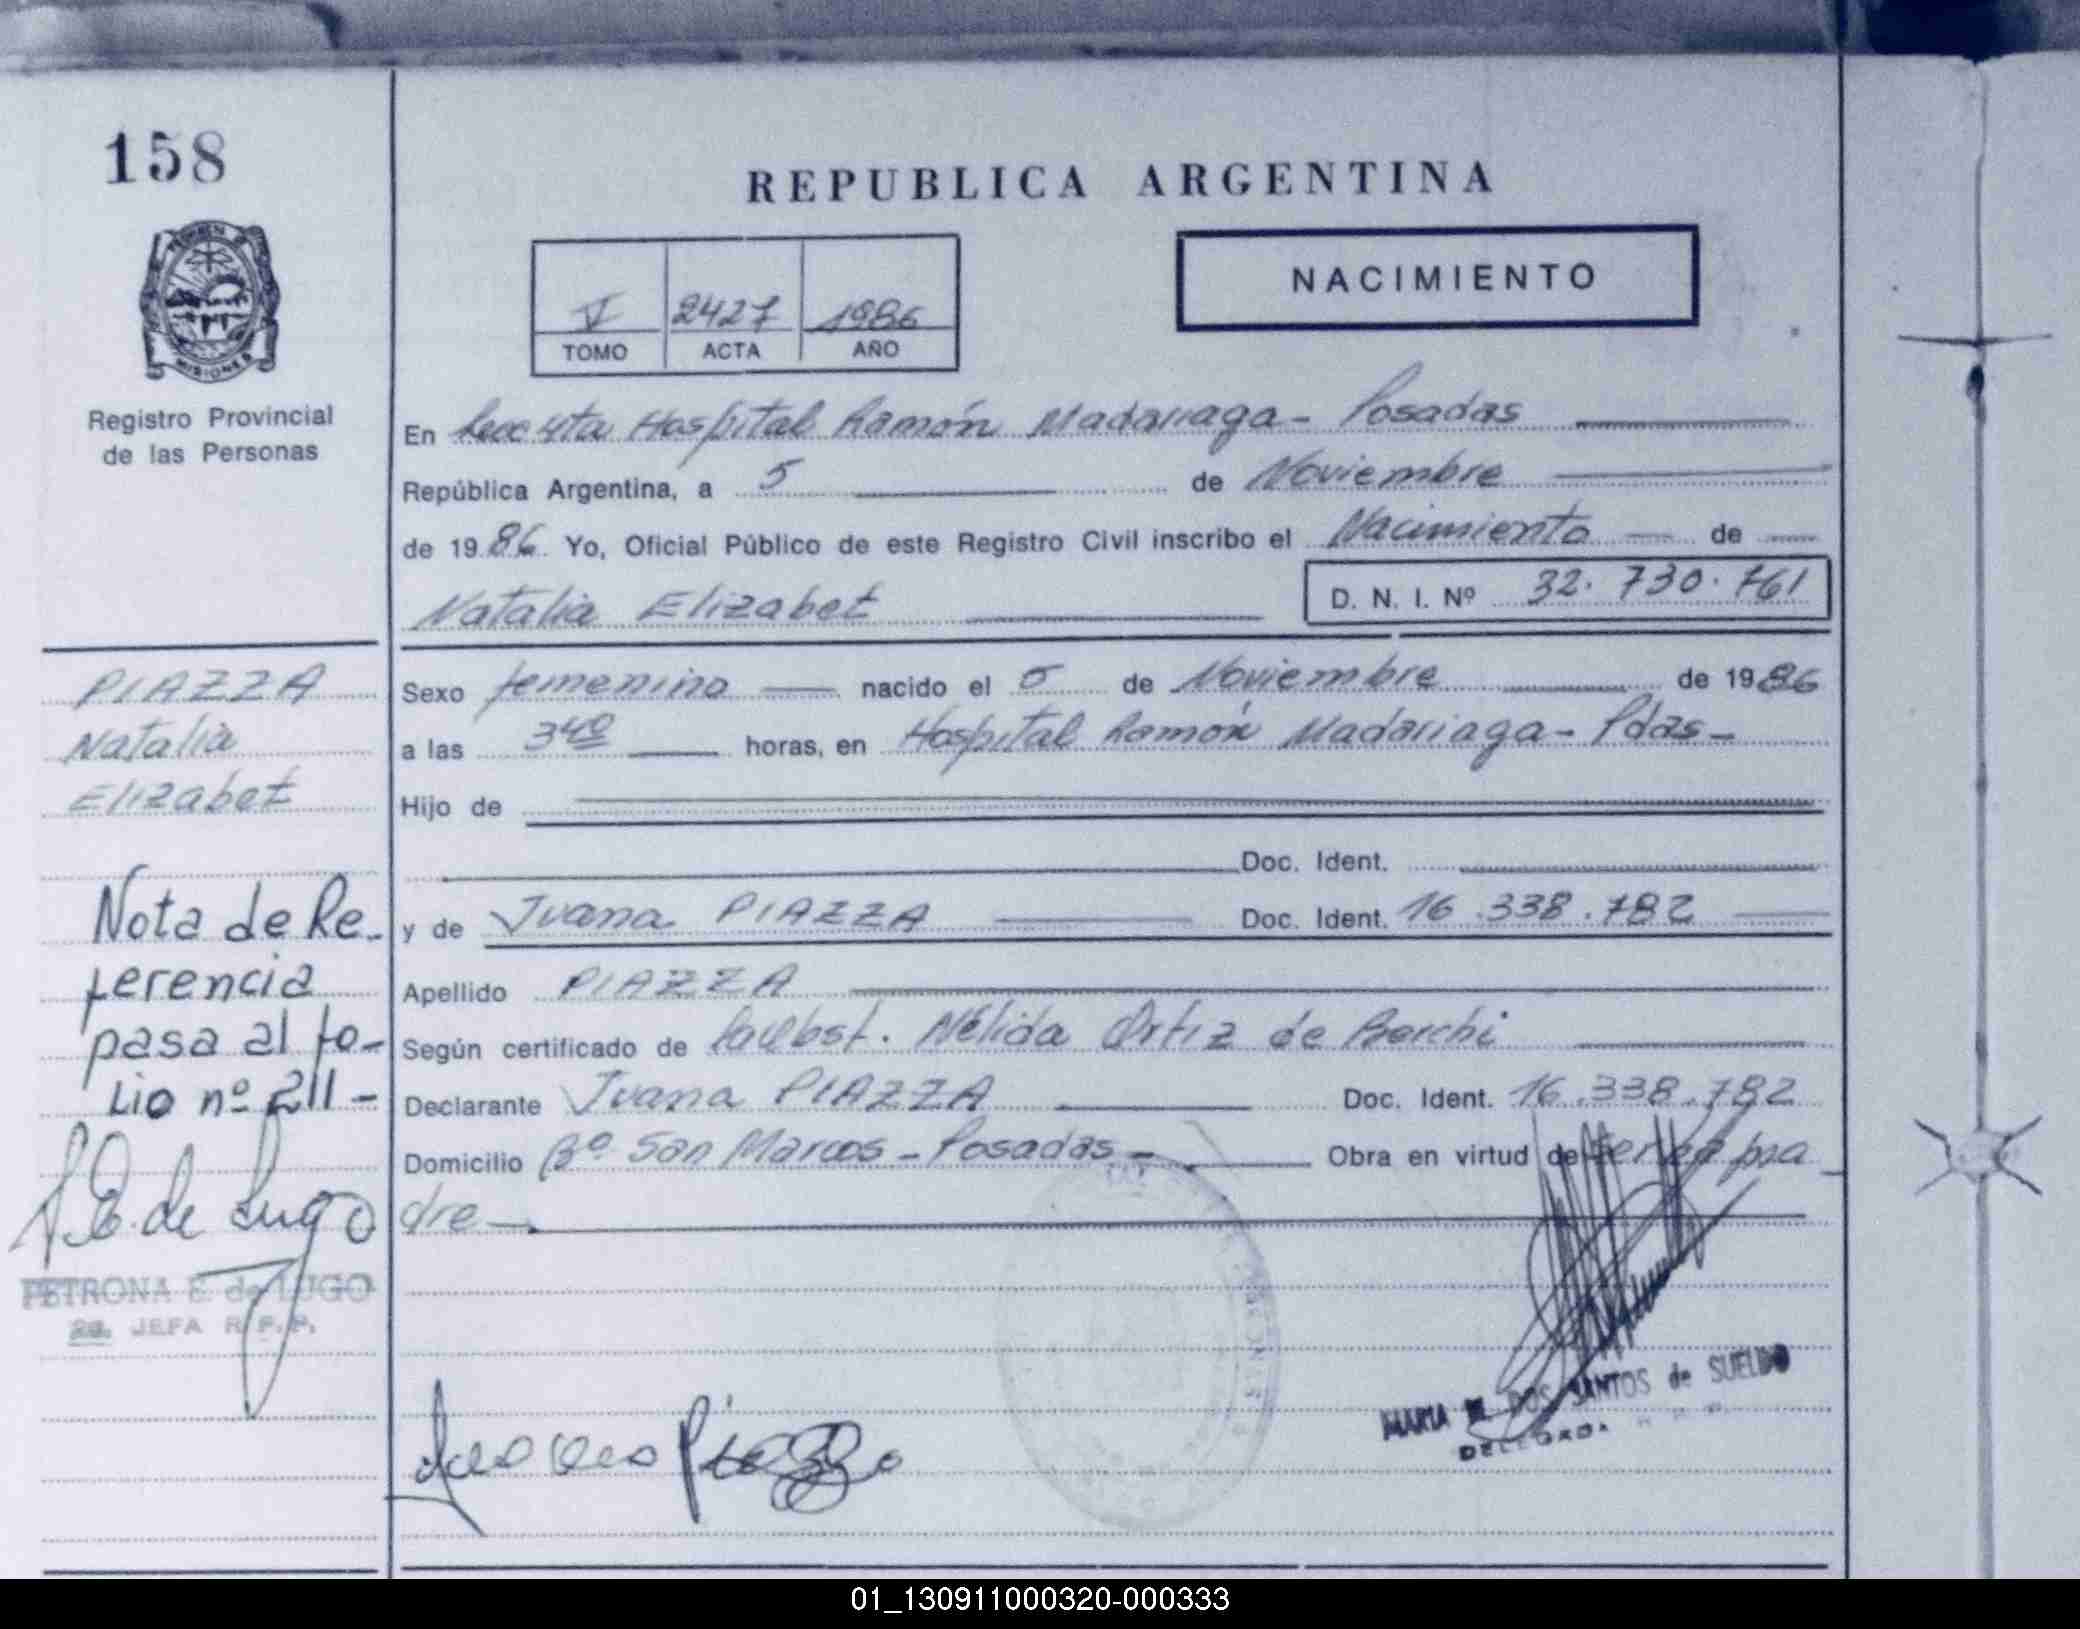 158
REPUBLICA ARGENTINA
NACIMIENTO
V 2427 1986
TOMO ACTA AÑO
MISIONES
Registro Provincial
de las Personas
En Secc 4ta Hospital Ramón Madariaga - Posadas
República Argentina, a 5 de Noviembre
de 1986. Yo, Oficial Público de este Registro Civil inscribo el Nacimiento de
Natalia Elizabet D. N. I. Nº 32.730.761
PIAZZA
Natalia
Elizabet
Sexo femenino nacido el 5 de Noviembre de 1986
a las 3 horas, en Hospital Ramón Madariaga - Pdas -
Hijo de
Doc. Ident.
y de Juana PIAZZA Doc. Ident. 16.338.782
Apellido PIAZZA
Según certificado de Nélida Ortiz de Berchi
Declarante Juana PIAZZA Doc. Ident. 16.338.782
Domicilio Bº San Marcos - Posadas - Obra en virtud de ser la ma
dre
Nota de Re-
ferencia
pasa al fo-
lio nº 211 -
P.E. de Lugo
PETRONA E de LUGO
2a. JEFA R.P.P.
Juana Piazza
MARIA DOS SANTOS de SUELDO
DELEGADA R. P. P.
01_130911000320-000333